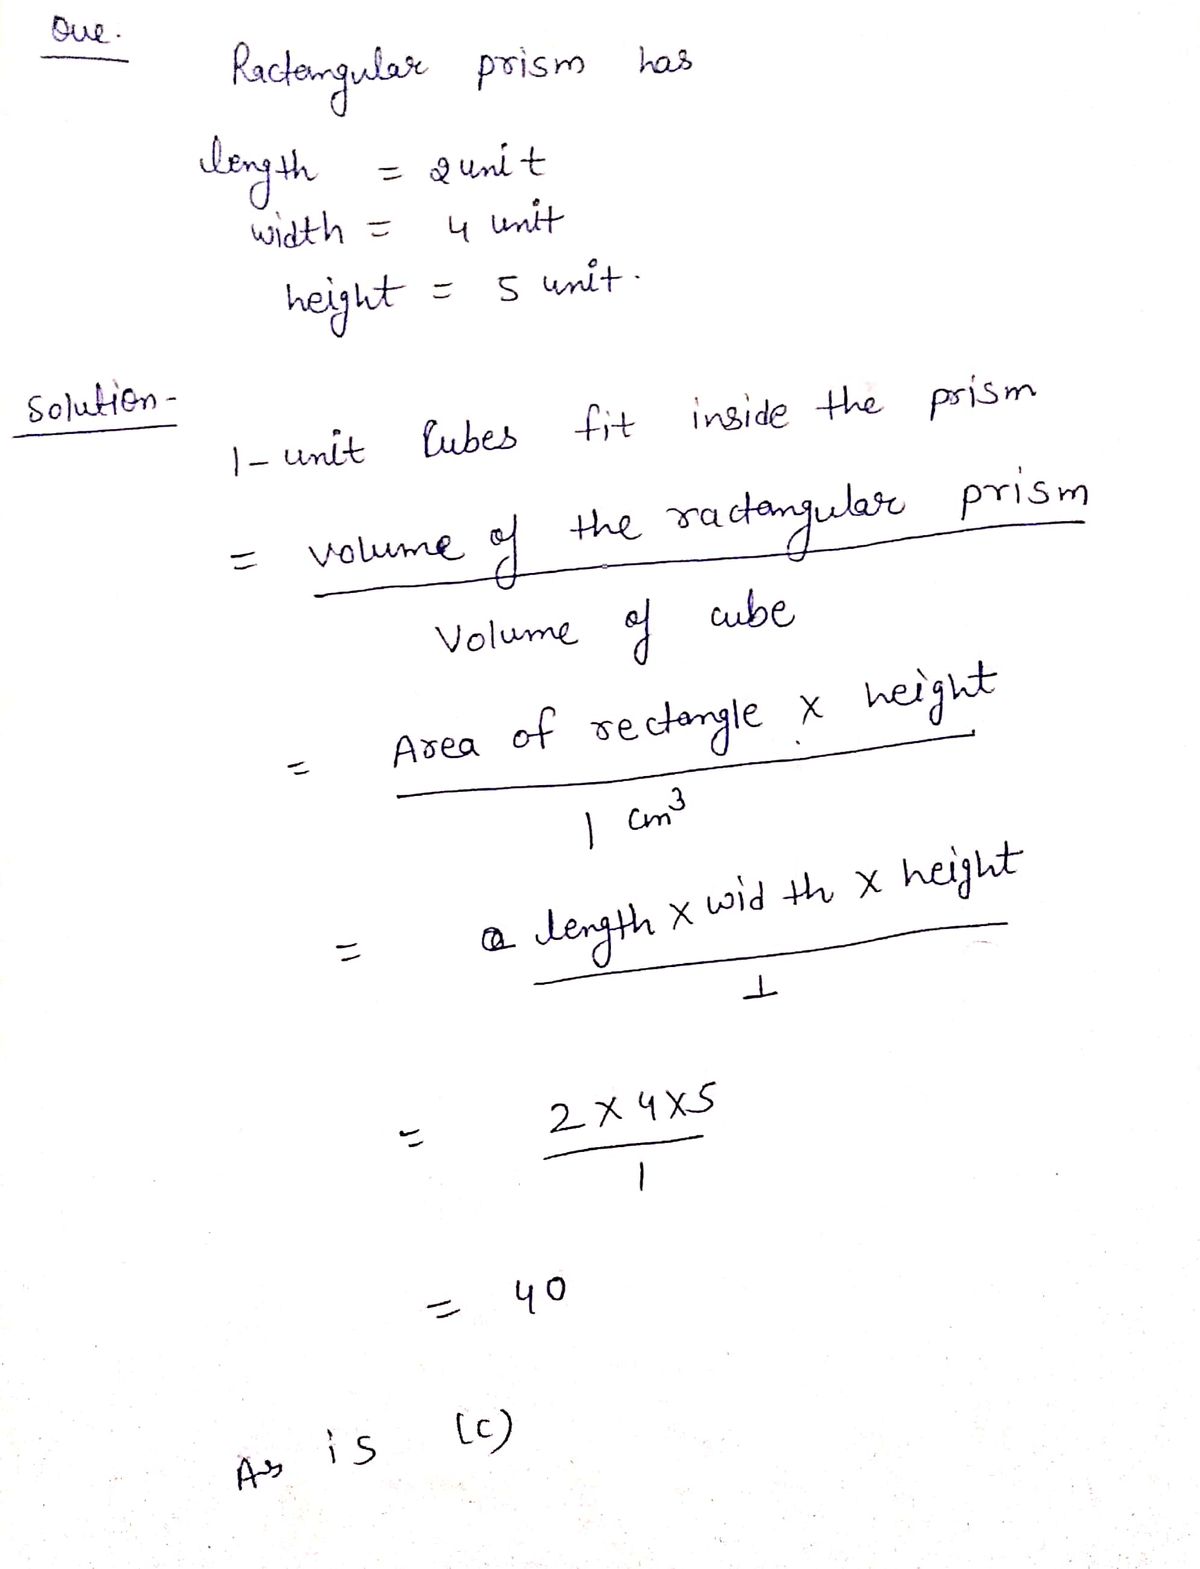 Que.
Ractangular prism has
length = 2 unit
width = 4 unit
height = 5 unit.
Solution-
1-unit Cubes fit inside the prism
= volume of the ractangular prism
Volume of cube
= Area of rectangle x height
1 cm³
= length x width x height
1
= 2 x 4 x 5
1
= 40
As is (c)